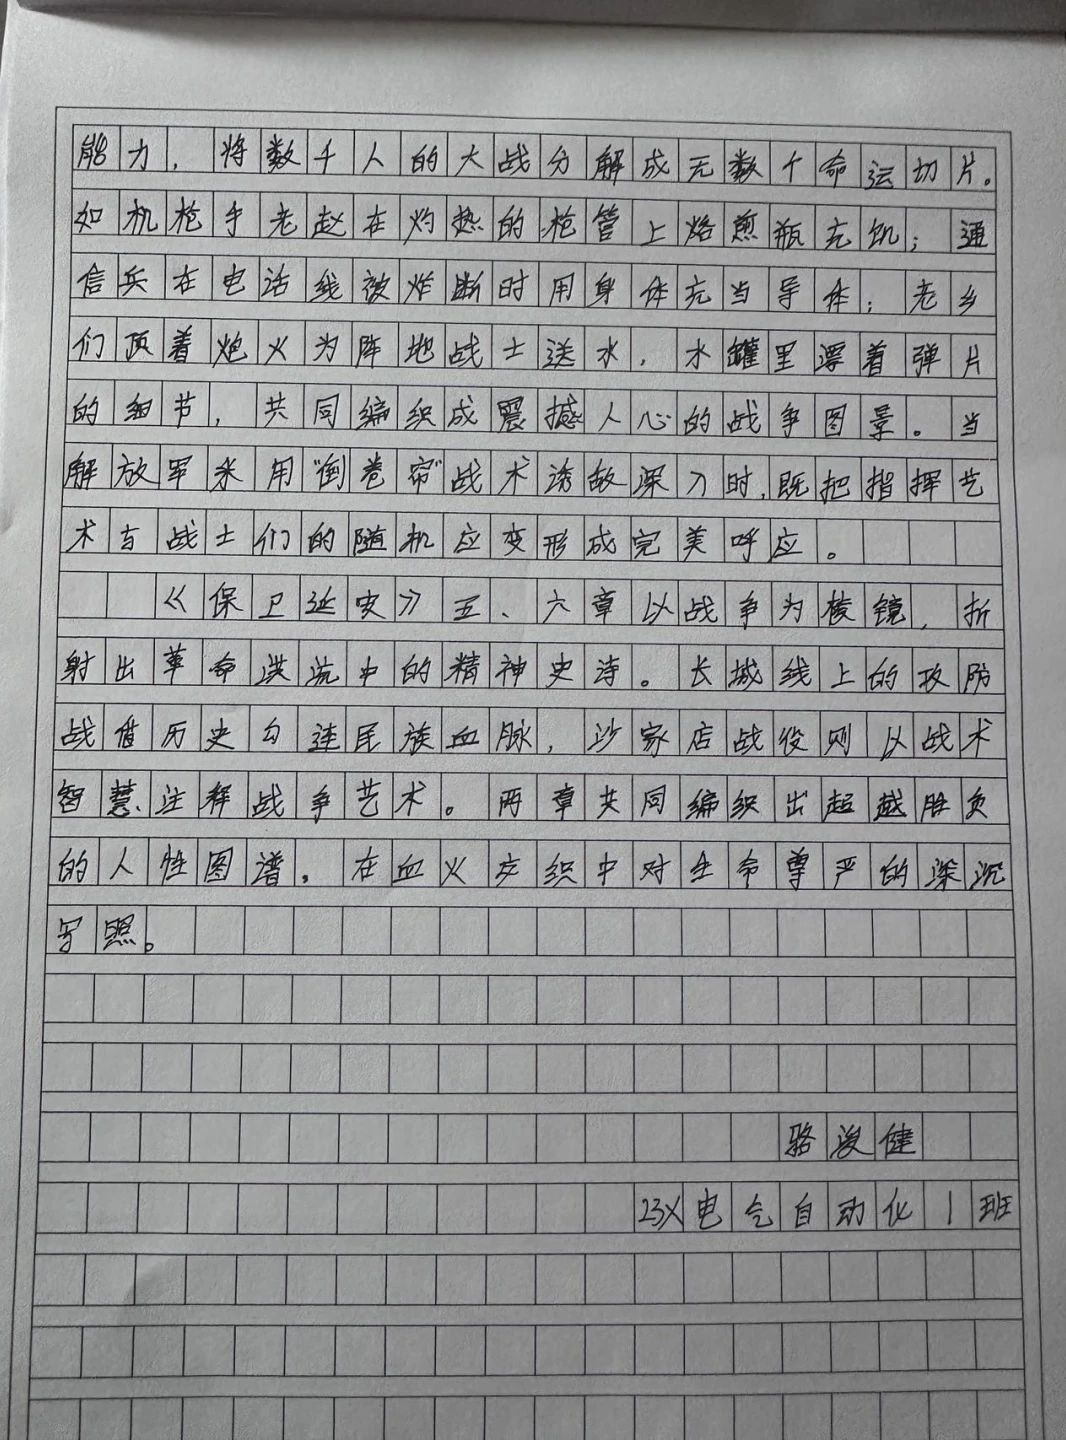 能力，将数千人的大战分解成无数个命运切片。
如机枪手老赵在灼热的枪管上烙煎瓶充饥；通
信兵在电话线被炸断时用身体充当导体；老乡
们顶着炮火为阵地战士送水，水罐里漂着弹片
的细节，共同编织成震撼人心的战争图景。当
解放军采用"倒卷帘"战术诱敌深入时，既把指挥艺
术与战士们的随机应变形成完美呼应。
《保卫延安》五、六章以战争为棱镜，折
射出革命洪流中的精神史诗。长城线上的攻防
战借历史勾连民族血脉，沙家店战役则以战术
智慧注释战争艺术。两章共同编织出超越胜负
的人性图谱，在血火交织中对生命尊严的深沉
写照。
骆浚健
23X电气自动化1班